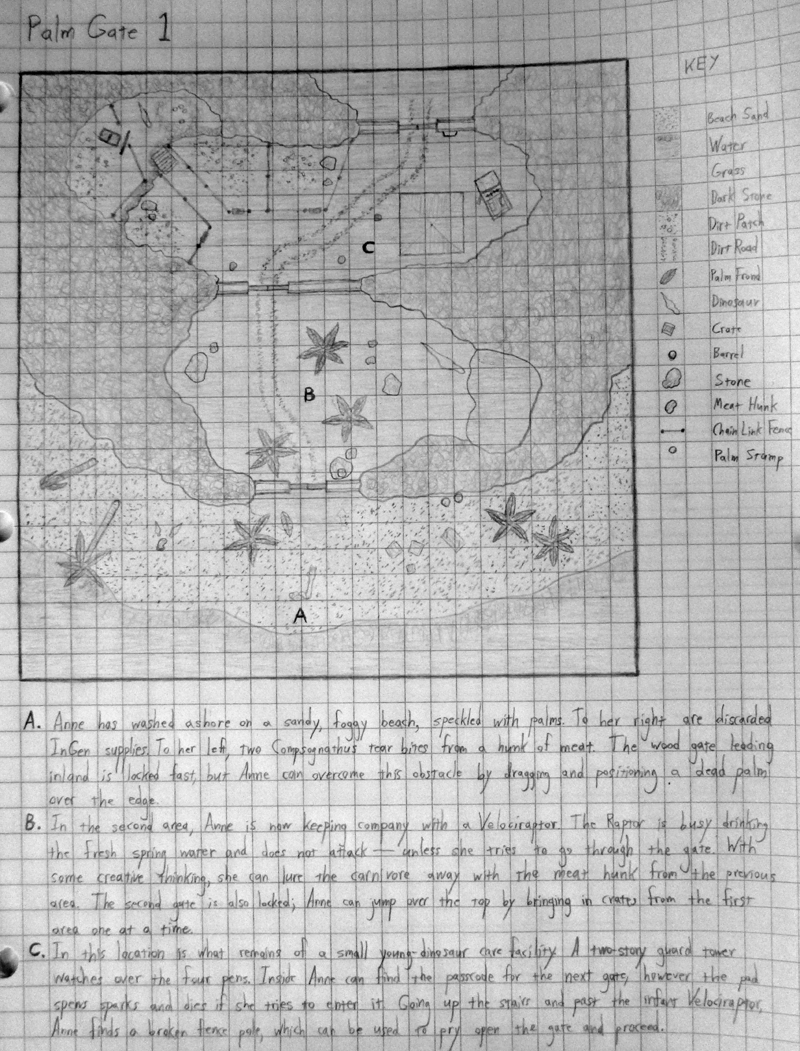 Palm Gate 1
KEY
Beach Sand
Water
Grass
Dark Stone
Dirt Patch
Dirt Road
Palm Frond
Dinosaur
Crate
Barrel
Stone
Meat Hunk
Chain Link Fence
Palm Stamp
C
B
A
A. Anne has washed ashore on a sandy, foggy beach, speckled with palms. To her right are discarded
InGen supplies. To her left, two Compsognathus tear bites from a hunk of meat. The wood gate leading
inland is locked fast, but Anne can overcome this obstacle by dragging and positioning a dead palm
over the edge.
B. In the second area, Anne is now keeping company with a Velociraptor. The Raptor is busy drinking
the fresh spring water and does not attack — unless she tries to go through the gate. With
some creative thinking, she can lure the carnivore away with the meat hunk from the previous
area. The second gate is also locked; Anne can jump over the top by bringing in crates from the first
area one at a time.
C. In this location is what remains of a small young-dinosaur care facility. A two-story guard tower
watches over the four pens. Inside Anne can find the passcode for the next gate, however the pad
spews sparks and dies if she tries to enter it. Going up the stairs and past the infant Velociraptor,
Anne finds a broken fence pole, which can be used to pry open the gate and proceed.